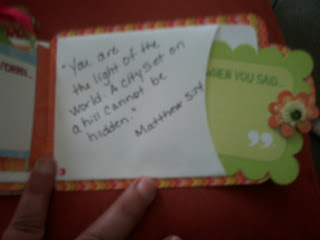 "You are
the light of the
world. A city set on
a hill cannot be
hidden."
Matthew 5:14
YOU SAID...
”